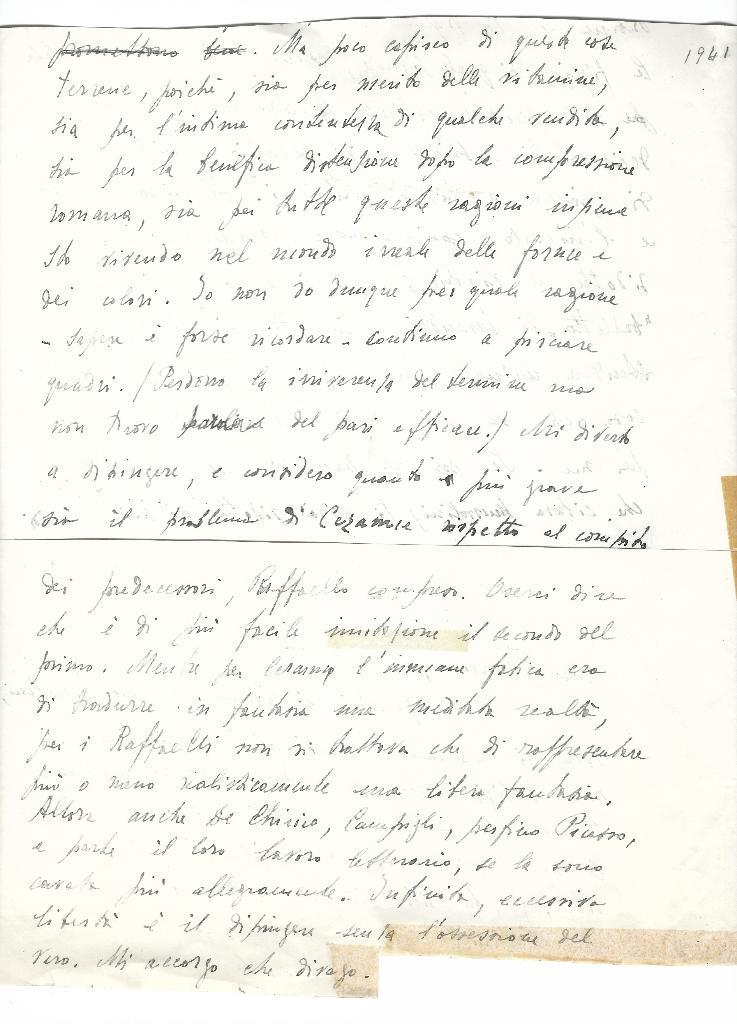 promettono bene. Ma poco capisco di queste cose
1941
terrene, poichè, sia per merito delle vitamine,
sia per l'intima contentezza di qualche vendita,
sia per la benefica distensione dopo la compressione
romana, sia per tutte queste ragioni insieme
sto vivendo nel mondo irreale delle forme e
dei colori. Io non so dunque per quale ragione
- sapere è forse ricordare - continuo a pisciare
quadri. (Perdono la irriverenza del termine ma
non trovo parola del pari efficace.) Mi diverto
a dipingere, e considero quanto più grave
sia il problema di Cezanne rispetto al compito
dei predecessori, Raffaello compreso. Oserei dire
che è di più facile imitazione il secondo del
primo. Mentre per Cezanne l'immane fatica era
di tradurre in fantasia una meditata realtà,
per i Raffaelli non si trattava che di raffresentare
più o meno realisticamente una libera fantasia.
Allora anche De Chirico, Campigli, perfino Picasso,
e parte il loro lavoro letterario, se la sono
cavata più allegramente. Infinita, eccessiva
libertà è il dipingere senza l'ossessione del
vero. Mi accorgo che divago.